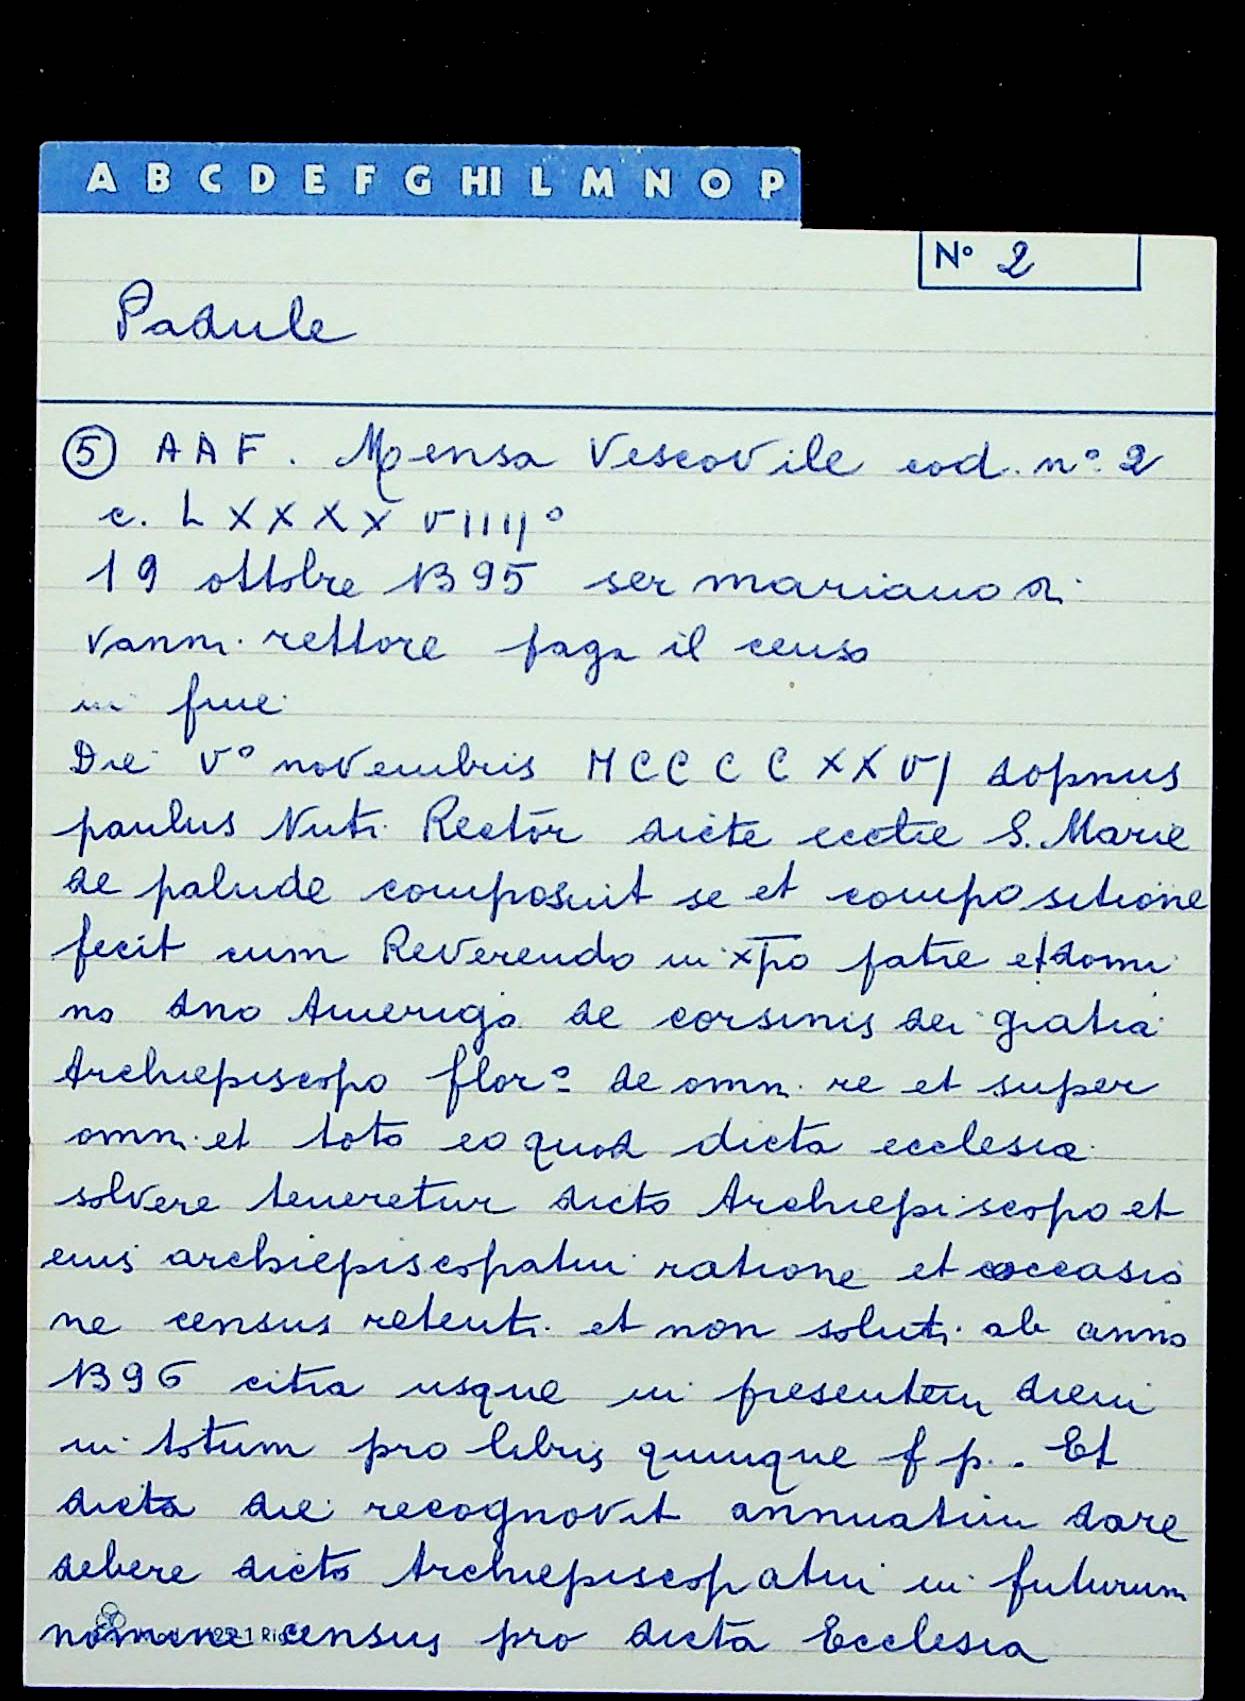 A B C D E F G HI L M N O P
N° 2
Padule
⑤ A A F. Mensa Vescovile cod. n° 2
c. L X X X X V I I I J °
19 ottobre 1395 ser mariano di
vanni rettore paga il censo
in fine
Die V° novembris M C C C C X X V J dopnus
paulus Nuti Rector dicte eccłie S. Marie
de palude composuit se et compositione
fecit cum Reverendo in xp̅o patre et domi
no dno Amerigo de corsinis dei gratia
Archiepiscopo flor° de omni re et super
omni et toto eo quod dicta ecclesia
solvere teneretur dicto Archiepiscopo et
eius archiepiscopatui ratione et occasio
ne census retenti et non soluti ab anno
1396 citra usque in presentem diem
in totum pro libris quinque f p. . Et
dicta die recognovit annuatim dare
debere dicto Archiepiscopatui in futurum
nomine census pro dicta Ecclesia